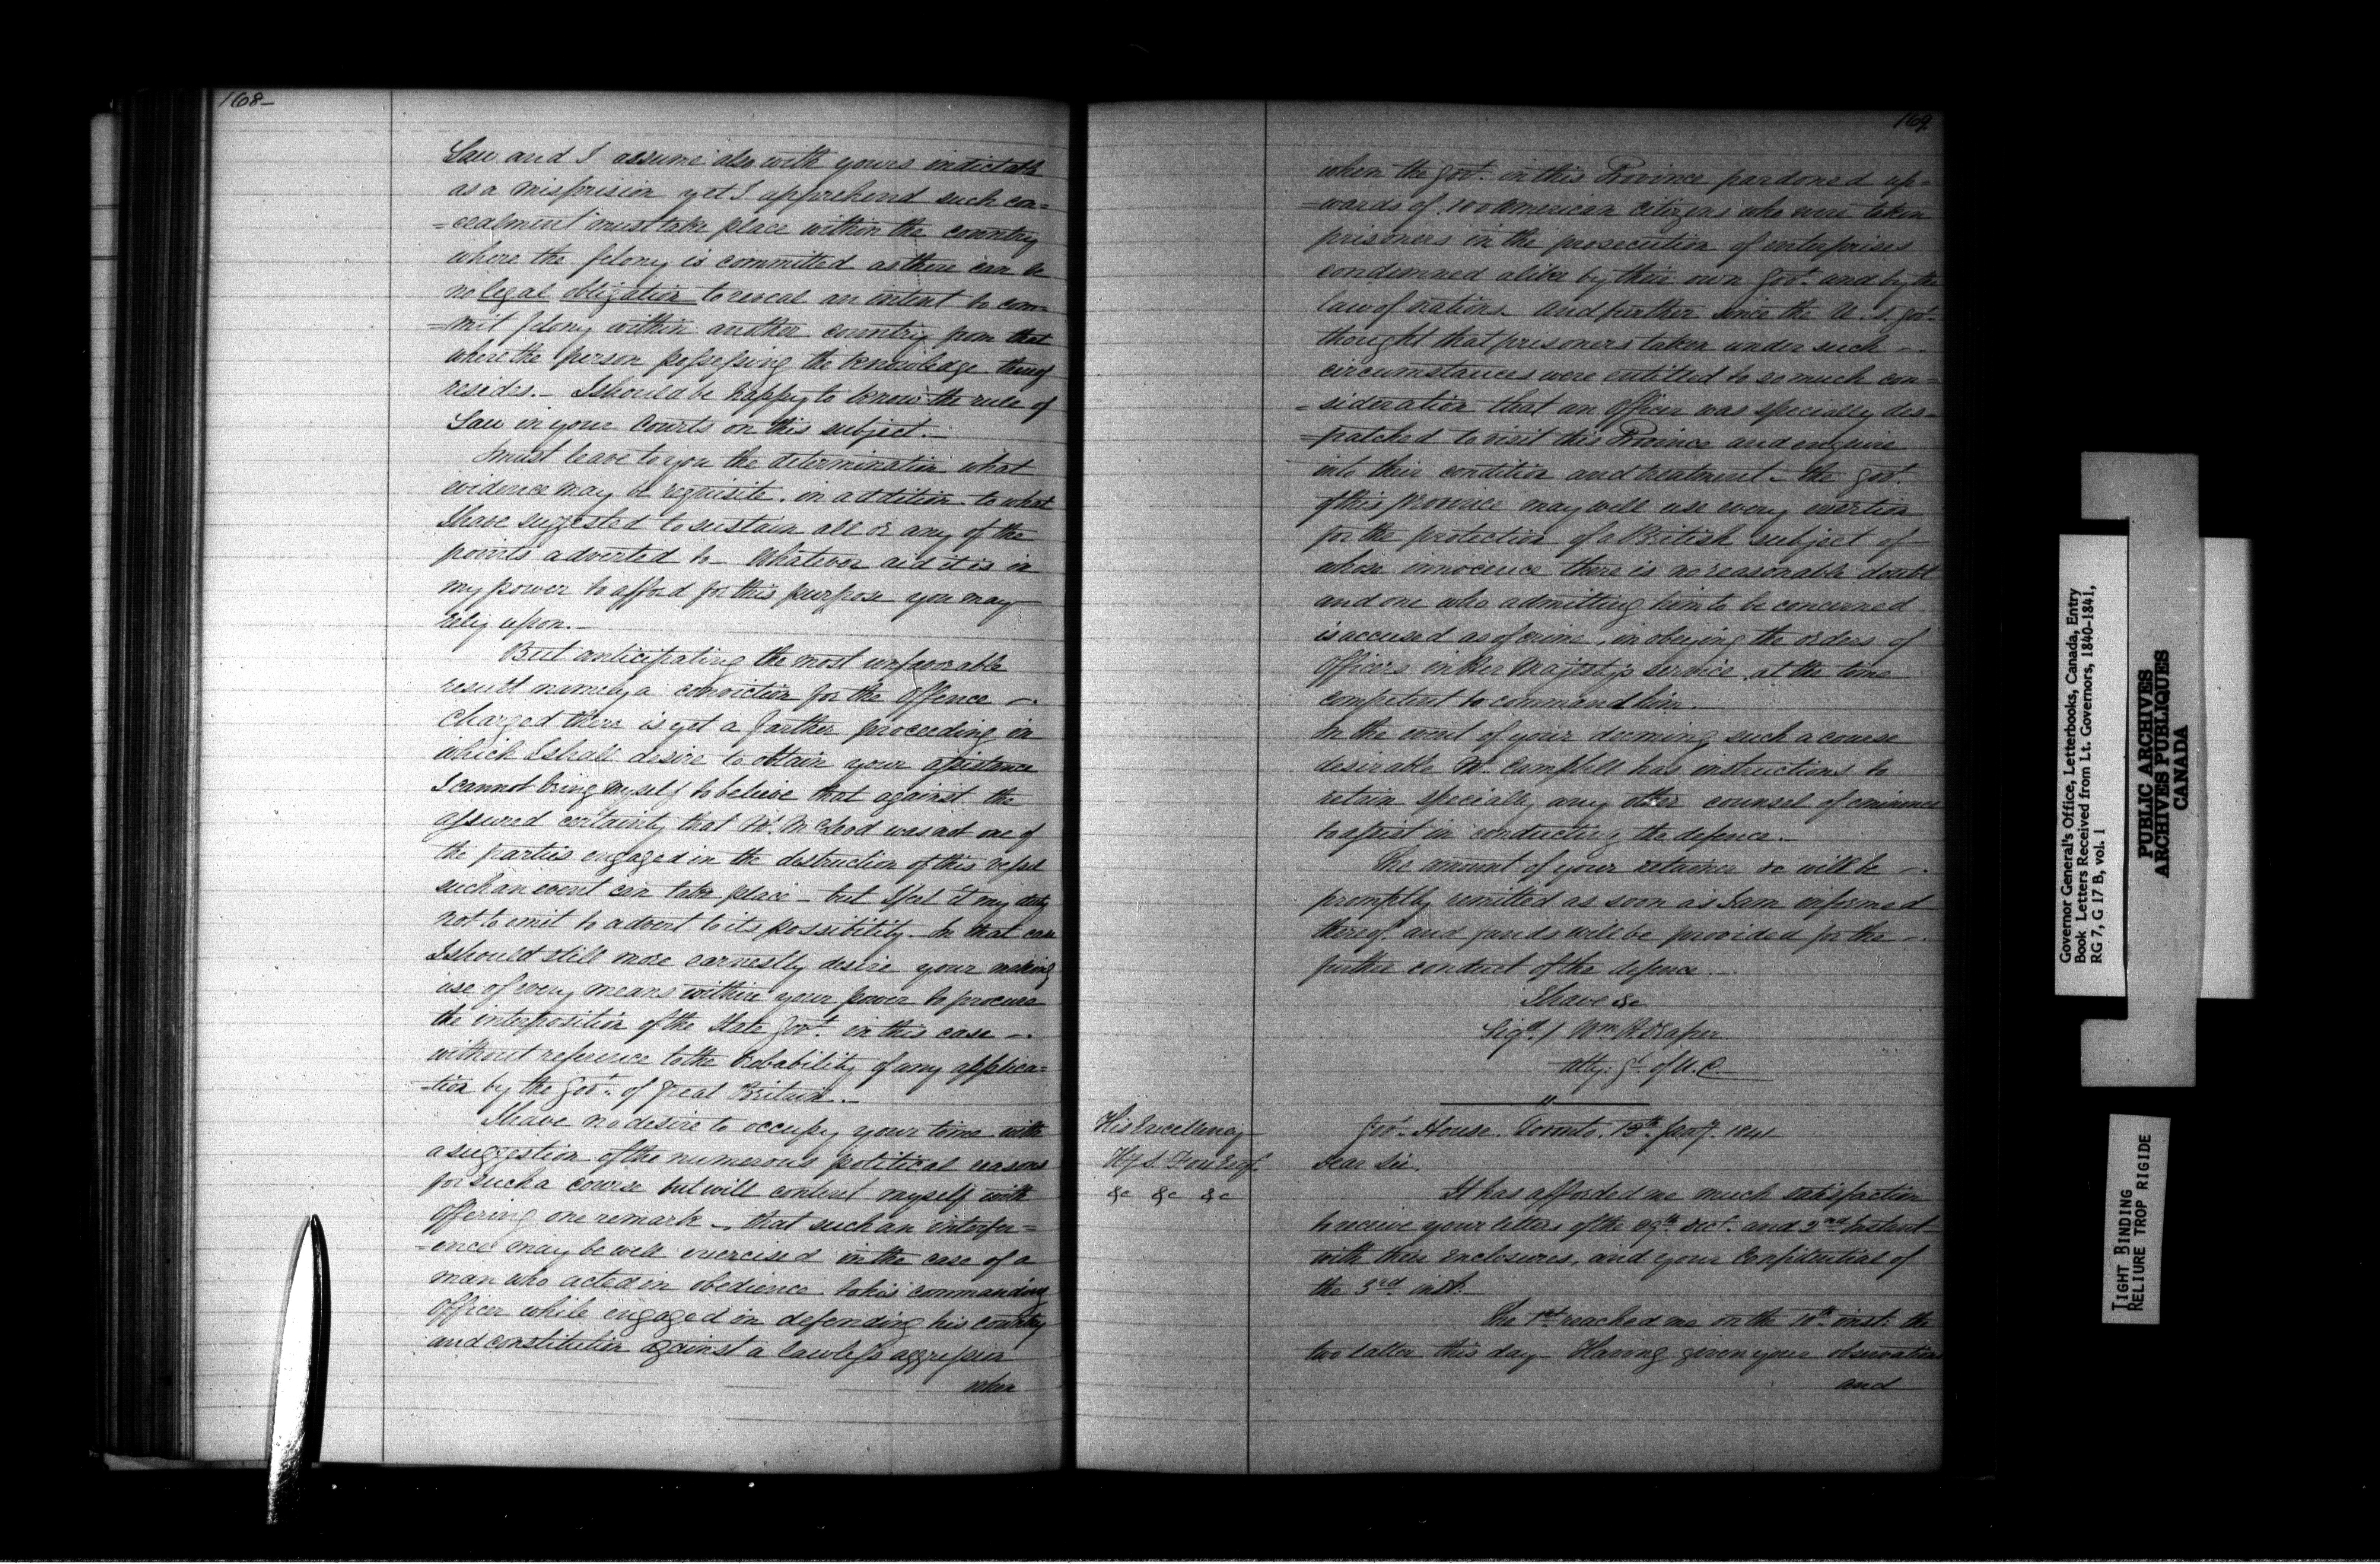 168-
Law and I assume also with yours indictable
as a misprision yet I apprehend such con=
=cealment must take place within the country
where the felony is committed as there can be
no legal obligation to reveal an intent to com=
=mit felony within another country from that
where the person possessing the knowledge thereof
resides. - I should be happy to know the rule of
Law in your Courts on this subject. -
I must leave to you the determination what
evidence may be requisite. in addition to what
I have suggested to sustain all or any of the
points adverted to - Whatever aid it is in
my power to afford for this purpose you may
rely upon. -
But anticipating the most unfavorable
result namely a conviction for the offence -
charged there is yet a farther proceeding in
which I shall desire to obtain your assistance
I cannot bring myself to believe that against the
assured certainty that Mr. McLeod was not one of
the parties engaged in the destruction of this vessel
such an event can take place - but I feel it my duty
not to omit to advert to its possibility. In that case
I should still more earnestly desire your making
use of every means within your power to procure
the interposition of the State Govt. in this case -
without reference to the probability of any applica=
=tion by the Govt. of Great Britain. -
I have no desire to occupy your time with
a suggestion of the numerous political reasons
for such a course but will content myself with
offering one remark - that such an interfer=
=ence may be well exercised in the case of a
man who acted in obedience to his commanding
Officer while engaged in defending his country
and constitution against a lawless aggression
when
169
when the Govt. in this Province pardoned up=
=wards of 100 American citizens who were taken
prisoners in the prosecution of enterprises
condemned alike by their own Govt. and by the
law of nations. And further since the U. S. Govt.
thought that prisoners taken under such -
circumstances were entitled to so much con=
=sideration that an Officer was specially des=
=patched to visit this Province and enquire
into their condition and treatment - the Govt.
of this Province may well use every exertion
for the protection of a British subject of
whose innocence there is no reasonable doubt
and one who admitting him to be concerned
is accused as of crime, in obeying the orders of
Officers in Her Majesty's service, at the time
competent to command him.
In the event of your deeming such a course
desirable Mr. Campbell has instructions to
retain specially any other counsel of eminence
to assist in conducting the defence. -
The amount of your retainer &c will be -
promptly remitted as soon as I am informed
thereof and funds will be provided for the -
further conduct of the defence.
I have &c
Sigd. / Wm. H. Draper
Atty. Gl. of U. C.
His Excellency
H. S. Fox Esq.
&c &c &c
Govt. House. Toronto. 13th. Jany. 1841
Dear Sir.
It has afforded me much satisfaction
to receive your letters of the 29th. Dect. and 2nd Instant
with their enclosures, and your Confidential of
the 3rd. inst.
The 1st reached me on the 10th. inst: the
two latter this day - Having given your observations
and
Governor General's Office, Letterbooks, Canada, Entry
Book Letters Received from Lt. Governors, 1840-1841,
RG 7, G 17 B, vol. 1
PUBLIC ARCHIVES
ARCHIVES PUBLIQUES
CANADA
TIGHT BINDING
RELIURE TROP RIGIDE